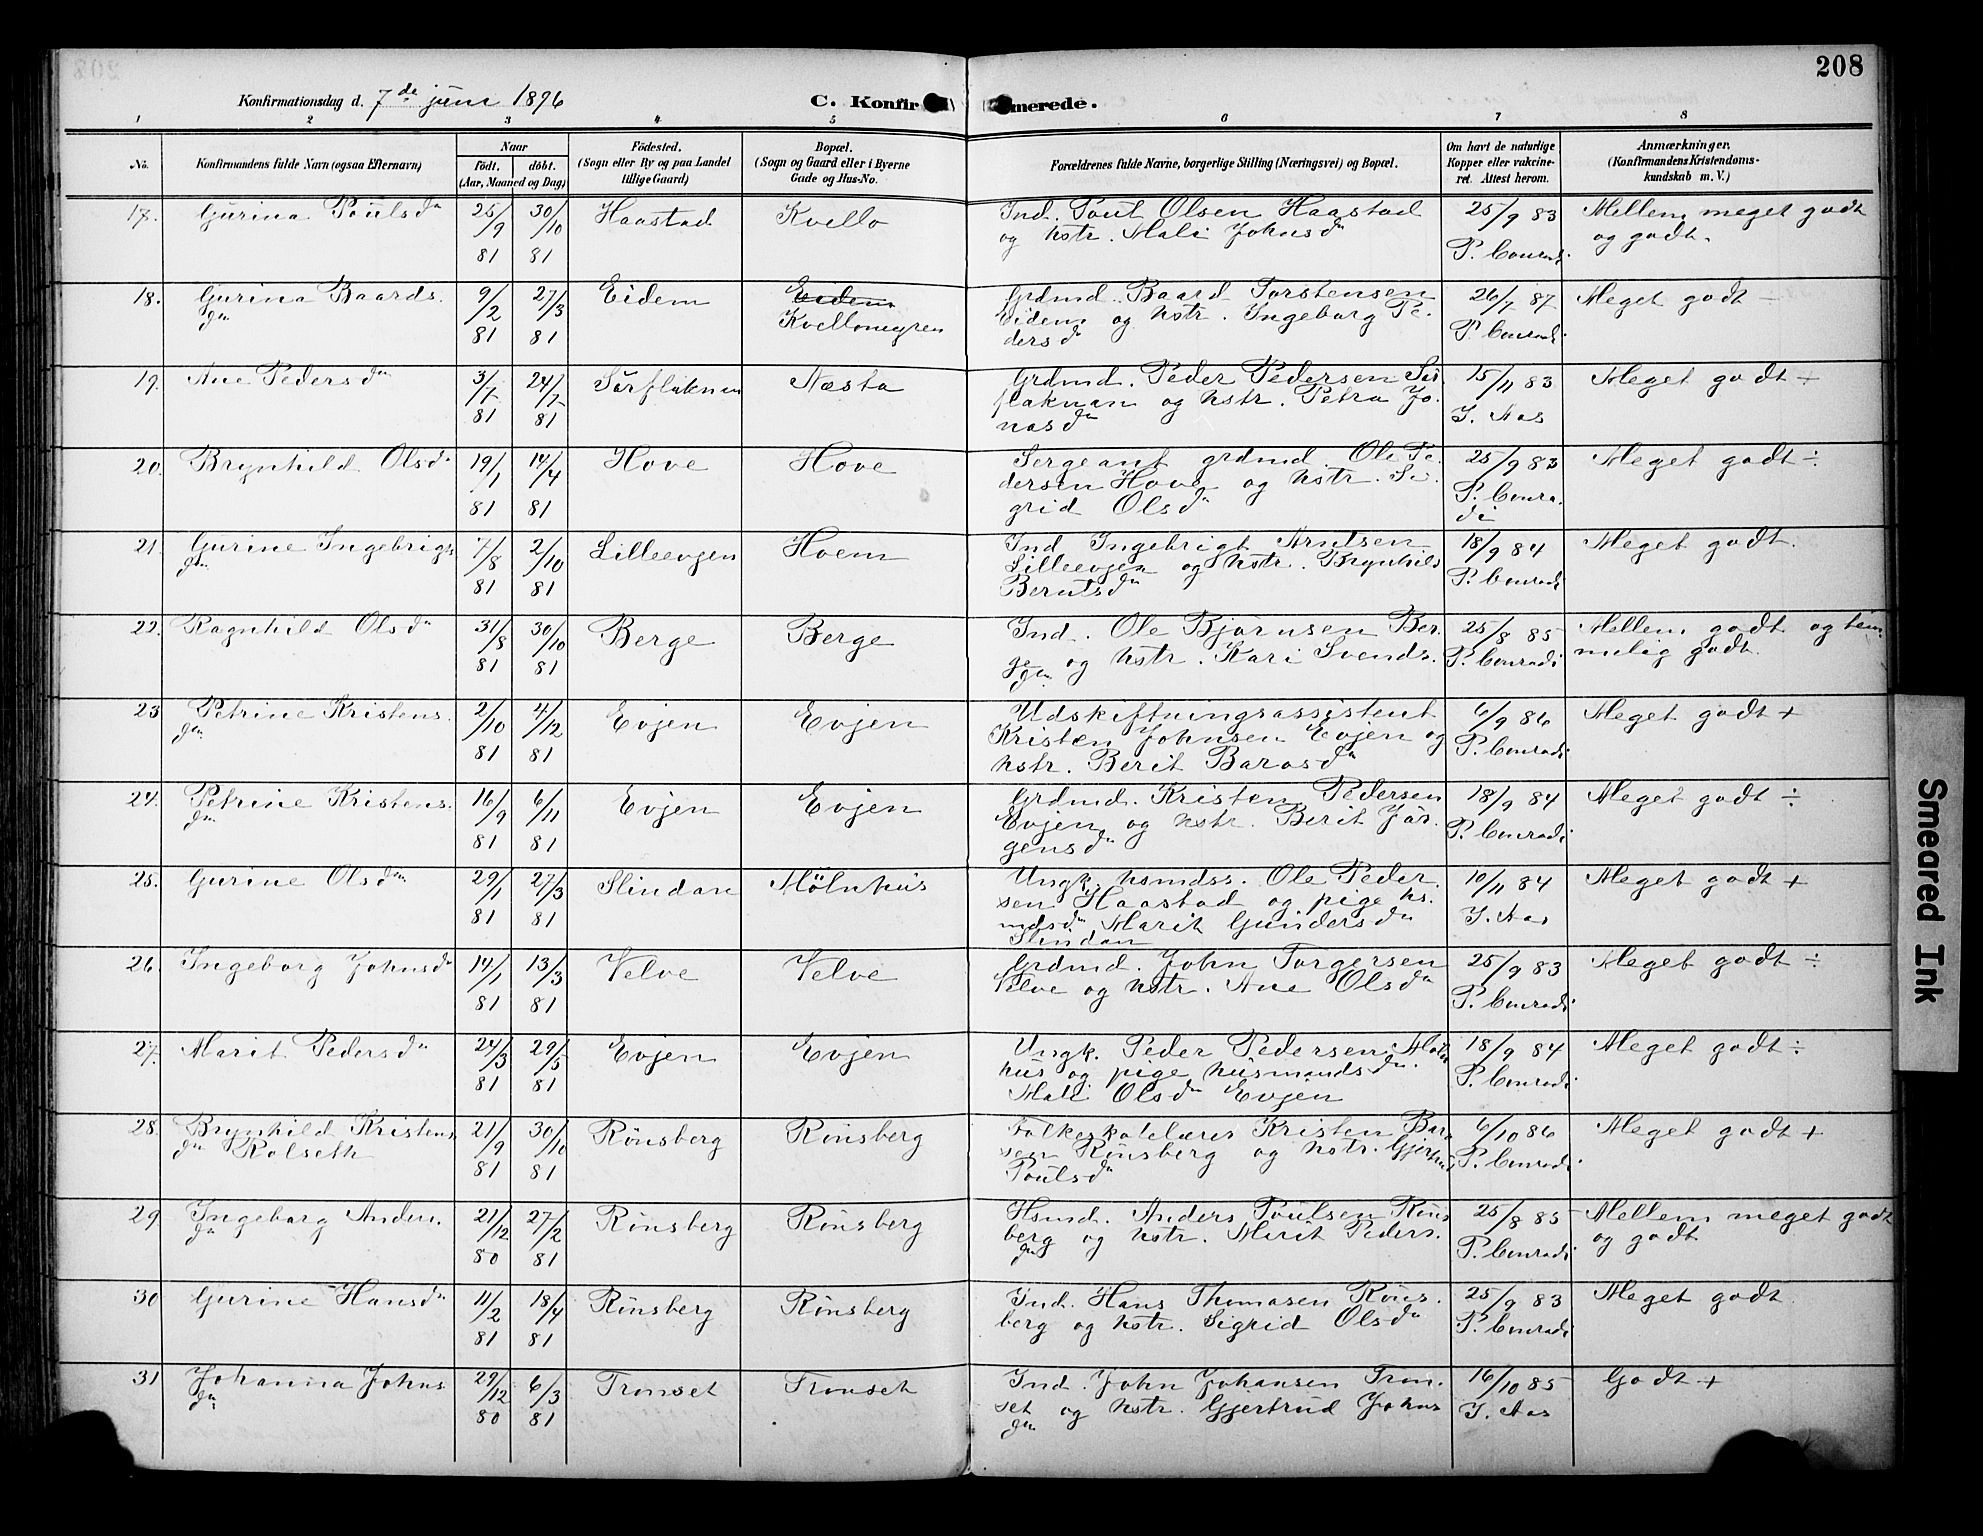 208
Konfirmationsdag d. 7de juni 1896
C. Konfirmerede.
1 2 3 4 5 6 7 8
No. Konfirmandens fulde Navn (ogsaa Efternavn) Naar födt. döbt. (Aar, Maaned og Dag) Födested. (Sogn eller By og paa Landet tillige Gaard) Bopæl. (Sogn og Gaard eller i Byerne Gade og Hus-No. Forældrenes fulde Navne, borgerlige Stilling (Næringsvei) og Bopæl. Om havt de naturlige Kopper eller vaccineret. Attest herom. Anmærkninger. (Konfirmandens Kristendomskundskab m. V.)
17. Gurina Poulsdn 25/9 81 30/10 81 Haastad Kvello Ind. Poul Olsen Haastad
og hstr. Mali Johnsdn 25/9 83 P. Conradi Mellem meget godt
og godt.
18. Gurina Baards.
dn 9/2 81 27/3 81 Eidem Eidem
Kvellomyren Grdmd. Baard Torstensen
Eidem og hstr. Ingeborg Pe-
dersdn 26/7 87 P. Conradi Meget godt –
19. Ane Pedersdn 3/7 81 24/7 81 Sörflaknan Næsta Grdmd. Peder Pedersen Sör
flaknan og hstr. Petra Jo.
nasdn 15/11 83 J. Aas Meget godt +
20. Brynhild Olsdn 19/1 81 14/4 81 Hove Hove Sergeant grdmd. Ole Pe.
dersen Hove og hstr. Si.
grid Olsdn 25/9 83 P. Conra.
di Meget godt ÷
21. Gurine Ingebrigts
dn 7/8 81 2/10 81 Lilleevjen Hoem Ind Ingebrigt Arntsen
Lilleevjen og hstr. Brynhild
Berntsdn 18/9 84 P. Conradi Meget godt.
22. Ragnhild Olsdn 31/8 81 30/10 81 Berge Berge Ind. Ole Bjørnsen Ber.
ge og hstr. Kari Svends.
dn 25/8 85 P. Conradi Mellem godt og tem
melig godt.
23 Petrine Kristens.
dn 2/10 81 4/12 81 Evjen Evjen Udskiftningsassistent
Kristen Johnsen Evjen og
hstr. Berit Barosdn 6/9 86 P. Conradi Meget godt +
24. Petrine Kristens.
dn 16/9 81 6/11 81 Evjen Evjen Grdmd. Kristen Pedersen
Evjen og hstr. Berit Jör.
gensdn 18/9 84 P. Conradi Meget godt ÷
25. Gurine Olsdn 29/1 81 27/3 81 Slindan Mölnhus Ungk. hsmdss. Ole Peder.
sen Haastad og pige hs.
mdsdn Marit Gundersdn
Slindan 10/11 84 J. Aas Meget godt +
26. Ingeborg Johnsdn 14/1 81 13/3 81 Velve Velve Grdmd. John Torgersen
Velve og hstr. Ane Olsdn 25/9 83 P. Conradi Meget godt ÷
27. Marit Pedersdn 24/3 81 29/5 81 Evjen Evjen Ungk. Peder Pedersen Möln
hus og pige husmandsdn.
Mali Olsdn Evjen 18/9 84 P. Conradi Meget godt ÷
28. Brynhild Kristens
dn Rolseth 21/9 81 30/10 81 Rönsberg Rönsberg Folkeskolelærer Kristen Baro
sen Rönsberg og hstr. Gjertrud
Poulsdn 6/10 86 P. Conradi Meget godt +
29 Ingeborg Anders.
dn 21/12 80 27/2 81 Rönsberg Rönsberg Hsmd. Anders Poulsen Röns
berg og hstr. Marit Peders.
dn 25/8 85 P. Conradi Mellem meget godt
og godt
30 Gurine Hansdn 11/2 81 18/4 81 Rönsberg Rönsberg Ind. Hans Thomasen Röns.
berg og hstr. Sigrid Olsdn 25/9 83 P. Conradi Meget godt.
31 Johanna Johns
dn 29/12 80 6/3 81 Tronset Tronset Ind. John Johansen Tron.
set og hstr. Gjertrud Johns
dn 16/10 85 J. Aas Godt +
Smeared Ink